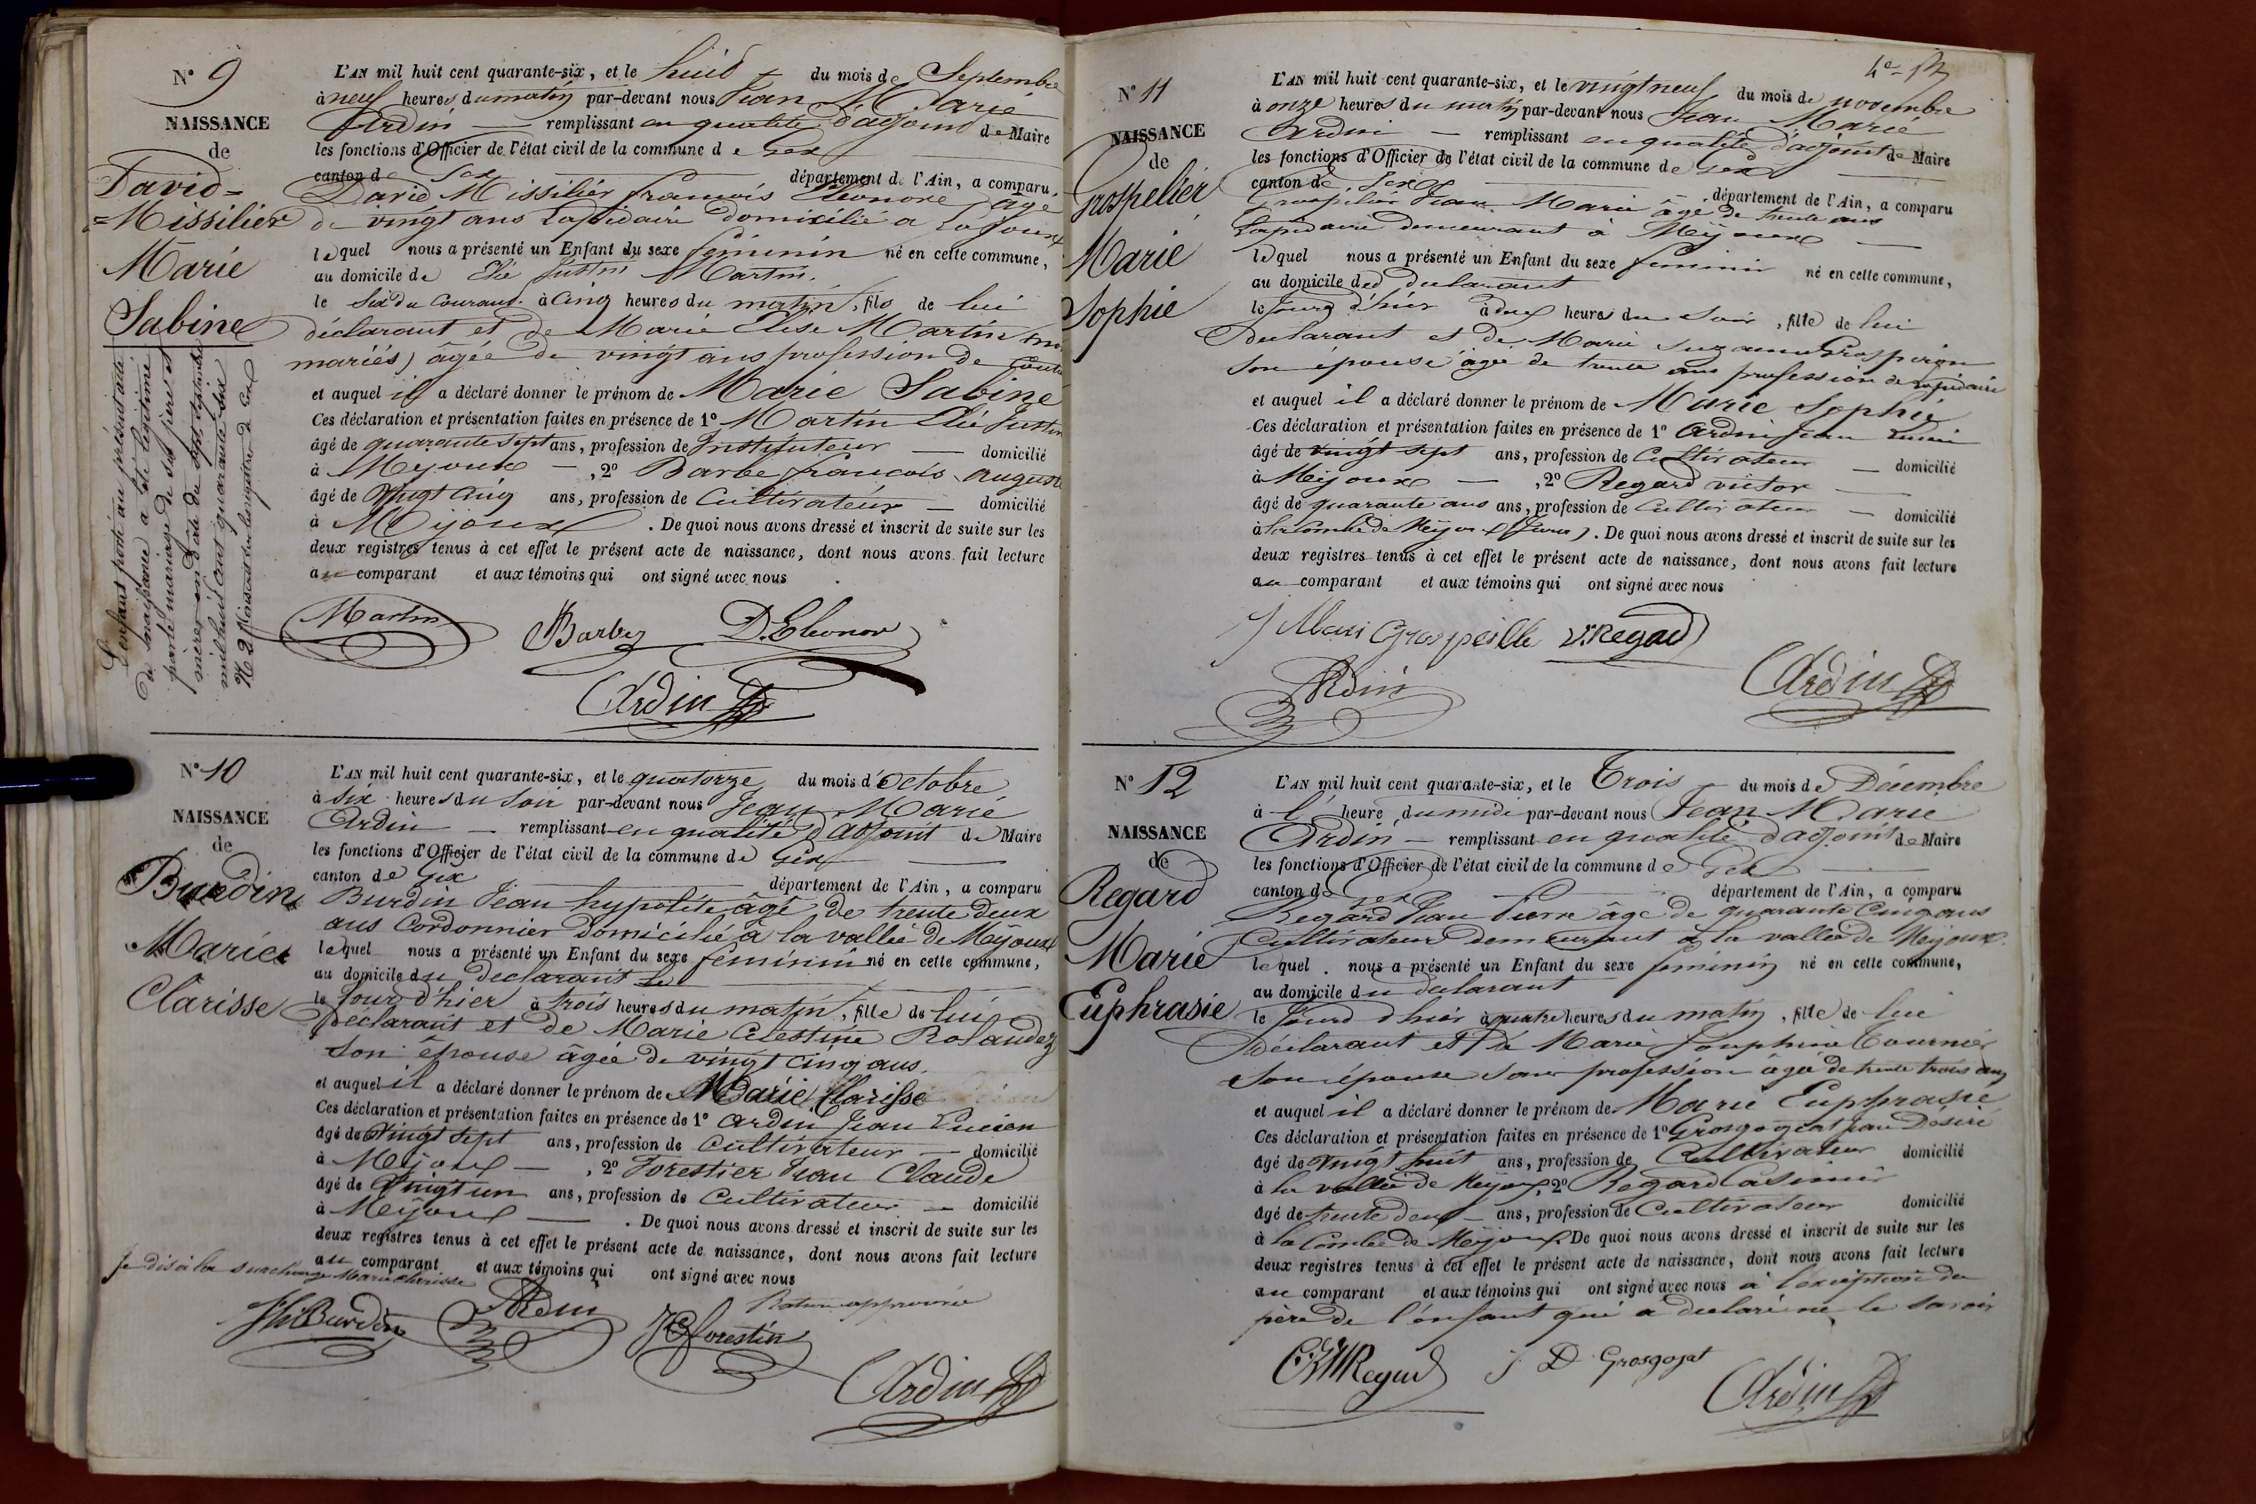 N° 9
NAISSANCE
de
David=
=Missilier
Marie
Sabine
L'enfant porté au présent acte
de naissance a été légitimé
par le mariage de ses père et
mère en date du sept septembre
mil huit cent quarante six
N° 2 inscrit au registre de Gex
L'AN mil huit cent quarante-six, et le huit du mois de Septembre
à neuf heures du matin par-devant nous Jean Marie
Ardin remplissant en qualité d'adjoint de Maire
les fonctions d'Officier de l'état civil de la commune de Gex
canton de Gex département de l'Ain, a comparu
David Missilier françois Eléonore âgé
de vingt ans Lapidaire domicilié a Lajoux
lequel nous a présenté un Enfant du sexe féminin né en cette commune,
au domicile de Elie Justin Martin.
le Six du Courant à Cinq heures du matin, fils de lui
déclarant et de Marie Elise Martin
mariés) âgée de vingt ans profession de
et auquel il a déclaré donner le prénom de Marie Sabine
Ces déclaration et présentation faites en présence de 1° Martin Elie Justin
âgé de quarante sept ans, profession de Instituteur domicilié
à Mijoux, 2° Barbe françois auguste
âgé de Vingt Cinq ans, profession de Cultivateur domicilié
à Mijoux. De quoi nous avons dressé et inscrit de suite sur les
deux registres tenus à cet effet le présent acte de naissance, dont nous avons fait lecture
au comparant et aux témoins qui ont signé avec nous
Martin Barbe D. Eleonor
Ardin
N° 10
NAISSANCE
de
Burdin
Marie
Clarisse
L'AN mil huit cent quarante-six, et le quatorze du mois d'Octobre
à six heures du Soir par-devant nous Jean Marie
Ardin remplissant en qualité d'adjoint de Maire
les fonctions d'Officier de l'état civil de la commune de Gex
canton de Gex département de l'Ain, a comparu
Burdin Jean hypolite âgé de trente deux
ans Cordonnier domicilié à la vallée de Mijoux
lequel nous a présenté un Enfant du sexe féminin né en cette commune,
au domicile du déclarant le
le Jour d'hier à trois heures du matin, fille de lui
déclarant et de Marie Celestine Rolandez
son épouse âgée de vingt cinq ans.
et auquel il a déclaré donner le prénom de Marie Clarisse
Ces déclaration et présentation faites en présence de 1° Ardin Jean Lucien
âgé de Vingt sept ans, profession de Cultivateur domicilié
à Mijoux, 2° Forestier Jean Claude
âgé de Vingt un ans, profession de Cultivateur domicilié
à Mijoux. De quoi nous avons dressé et inscrit de suite sur les
deux registres tenus à cet effet le présent acte de naissance, dont nous avons fait lecture
au comparant et aux témoins qui ont signé avec nous
Je dis à la surcharge Marie Clarisse
Rature approuvée
JhBurdin Ardin JC forestier
Ardin
N° 11
NAISSANCE
de
Grospelier
Marie
Sophie
L'AN mil huit cent quarante-six, et le vingt neuf du mois de novembre
à onze heures du matin par-devant nous Jean Marie
Ardin remplissant en qualité d'adjoint de Maire
les fonctions d'Officier de l'état civil de la commune de Gex
canton de Gex département de l'Ain, a comparu
Grospelier Jean Marie âgé de trente ans
Lapidaire demeurant à Mijoux
lequel nous a présenté un Enfant du sexe feminin né en cette commune,
au domicile du déclarant
le Jour d'hier à deux heures du Soir, fille de lui
déclarant et de Marie Suzanne
son épouse âgée de trente ans profession de Lapidaire
et auquel il a déclaré donner le prénom de Marie Sophie
Ces déclaration et présentation faites en présence de 1° Ardin Jean Lucien
âgé de vingt sept ans, profession de Cultivateur domicilié
à Mijoux, 2° Regard victor
âgé de quarante ans ans, profession de Cultivateur domicilié
à la Combe de Mijoux (Jura). De quoi nous avons dressé et inscrit de suite sur les
deux registres tenus à cet effet le présent acte de naissance, dont nous avons fait lecture
au comparant et aux témoins qui ont signé avec nous
J Mari Grospeille V. Regard
Ardin
Ardin
N° 12
NAISSANCE
de
Regard
Marie
Euphrasie
L'AN mil huit cent quarante-six, et le Trois du mois de Décembre
à l' heure du midi par-devant nous Jean Marie
Ardin remplissant en qualité d'adjoint de Maire
les fonctions d'Officier de l'état civil de la commune de Gex
canton de Gex département de l'Ain, a comparu
Regard Jean Pierre âgé de quarante Cinq ans
Cultivateur demeurant à la vallée de Mijoux
lequel nous a présenté un Enfant du sexe féminin né en cette commune,
au domicile du déclarant
le Jour d'hier à quatre heures du matin, fille de lui
Déclarant et de Marie Josephine Tournier
son épouse sans profession âgée de trente trois ans
et auquel il a déclaré donner le prénom de Marie Euphrasie
Ces déclaration et présentation faites en présence de 1° Grosgogeat Jean Désiré
âgé de vingt huit ans, profession de Cultivateur domicilié
à la vallée de Mijoux, 2° Regard Casimir
âgé de trente deux ans, profession de Cultivateur domicilié
à la Combe de Mijoux De quoi nous avons dressé et inscrit de suite sur les
deux registres tenus à cet effet le présent acte de naissance, dont nous avons fait lecture
au comparant et aux témoins qui ont signé avec nous à l'exception du
père de l'enfant qui a déclaré ne le savoir
Regard J D Grosgogat
Ardin